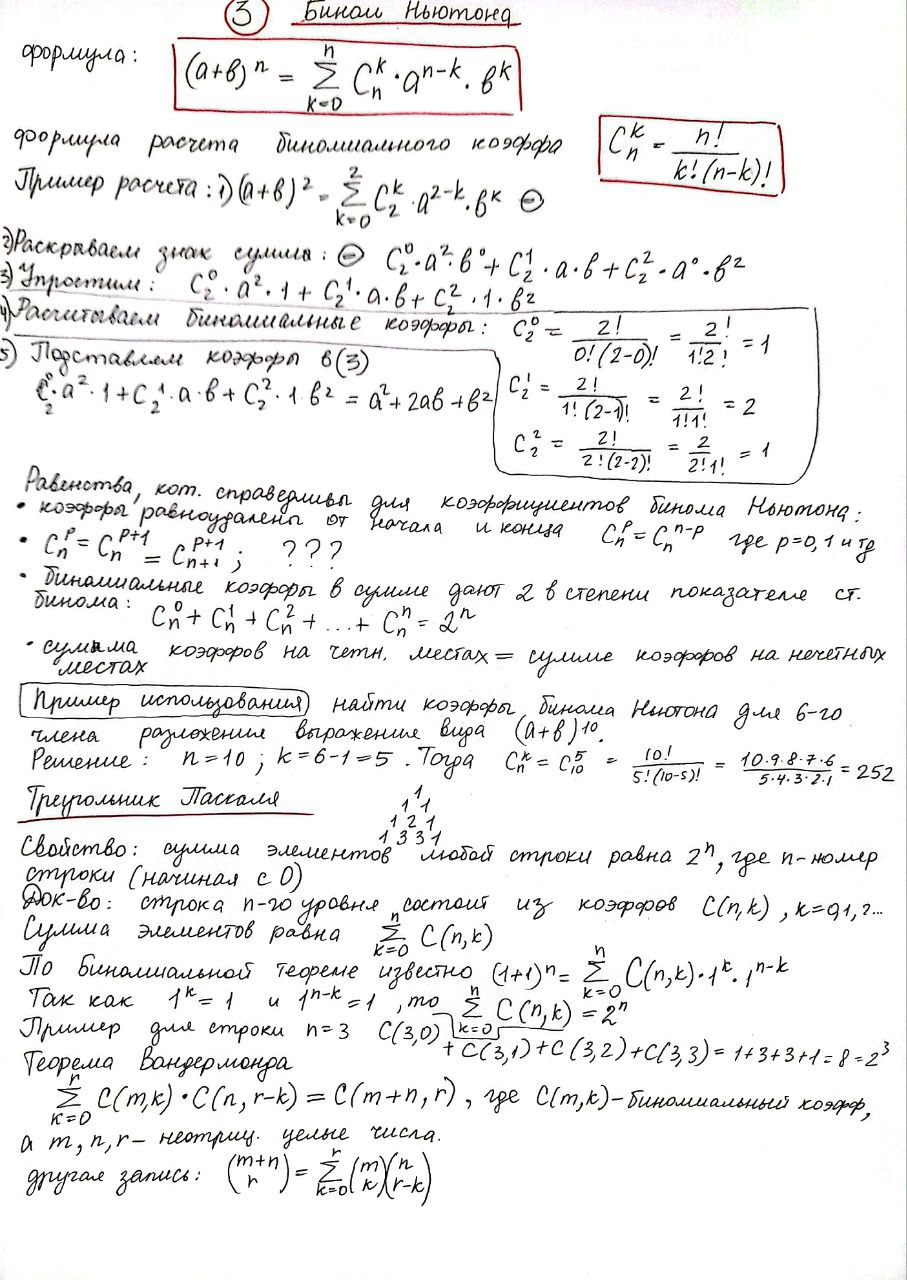 3 Бином Ньютона
формула: (a+b)ⁿ = Σ_{k=0}^{n} C_n^k · a^{n-k} · b^k
формула расчета биномиального коэффа C_n^k = n! / k!·(n-k)!
Пример расчета: 1) (a+b)² = Σ_{k=0}^{2} C_2^k · a^{2-k} · b^k ⊖
2) Раскрываем знак суммы: ⊖ C_2^0 · a² · b⁰ + C_2^1 · a · b + C_2^2 · a⁰ · b²
3) Упростим: C_2^0 · a² · 1 + C_2^1 · a · b + C_2^2 · 1 · b²
4) Расчитываем биномиальные коэффы: C_2^0 = 2! / 0!(2-0)! = 2! / 1!2! = 1
C_2^1 = 2! / 1!(2-1)! = 2! / 1!1! = 2
C_2^2 = 2! / 2!(2-2)! = 2 / 2!1! = 1
5) Подставляем коэффы в (3)
C_2^0 · a² · 1 + C_2^1 · a · b + C_2^2 · 1 · b² = a² + 2ab + b²
Равенства, кот. справедливы для коэффициентов бинома Ньютона:
• коэффы равноудалены от начала и конца C_n^p = C_n^{n-p} где p=0,1 и тд
• C_n^p = C_n^{p+1} = C_{n+1}^{p+1} ; ???
• биномиальные коэффы в сумме дают 2 в степени показателе ст.
бинома: C_n^0 + C_n^1 + C_n^2 + ... + C_n^n = 2ⁿ
• сумма коэффов на четн. местах = сумме коэффов на нечетных
местах
Пример использования) найти коэффы бинома Ньютона для 6-го
члена разложения выражения вида (a+b)¹⁰.
Решение: n=10; k=6-1=5. Тогда C_n^k = C_10^5 = 10! / 5!(10-5)! = 10·9·8·7·6 / 5·4·3·2·1 = 252
Треугольник Паскаля
1
1 1
1 2 1
1 3 3 1
Свойство: сумма элементов любой строки равна 2ⁿ, где n-номер
строки (начиная с 0)
Док-во: строка n-го уровня состоит из коэффов C(n,k), k=0,1,2...
Сумма элементов равна Σ_{k=0}^{n} C(n,k)
По Биномиальной теореме известно (1+1)ⁿ = Σ_{k=0}^{n} C(n,k)·1^k·1^{n-k}
Так как 1^k=1 и 1^{n-k}=1, то Σ_{k=0}^{n} C(n,k) = 2ⁿ
Пример для строки n=3 C(3,0)
+ C(3,1) + C(3,2) + C(3,3) = 1+3+3+1=8=2³
Теорема Вандермонда
Σ_{k=0}^{r} C(m,k)·C(n,r-k) = C(m+n,r), где C(m,k)-биномиальный коэфф,
а m,n,r- неотриц. целые числа.
другая запись: (m+n r) = Σ_{k=0}^{r} (m k)(n r-k)